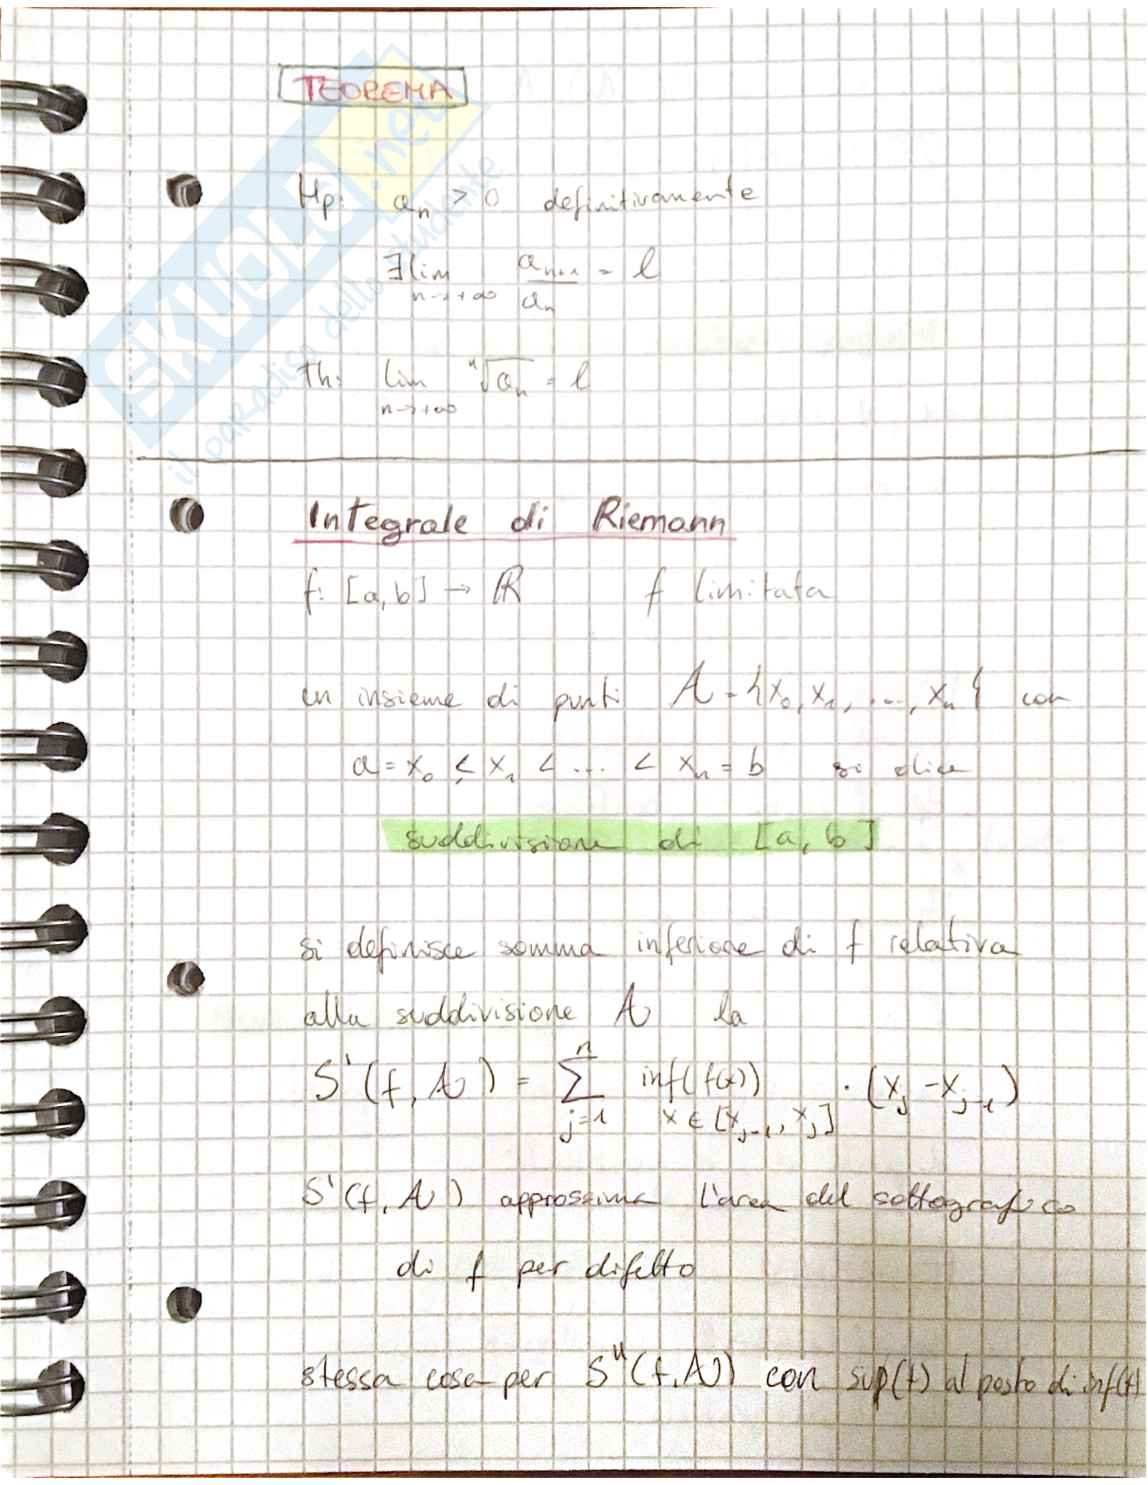 TEOREMA
Hp: aₙ > 0 definitivamente
∃ lim n→+∞ aₙ₊₁/aₙ = l
Th: lim n→+∞ ⁿ√aₙ = l
Integrale di Riemann
f: [a,b] → ℝ f limitata
un insieme di punti A = {x₀, x₁, ...., xₙ} con
a = x₀ ≤ x₁ < .... < xₙ = b si dice
suddivisione di [a, b]
si definisce somma inferiore di f relativa
alla suddivisione A la
S'(f, A) = ∑ j=1 n inf(f(x)) x ∈ [xⱼ₋₁, xⱼ] · (xⱼ - xⱼ₋₁)
S'(f, A) approssima l'area del sottografico
di f per difetto
stessa cosa per S"(f, A) con sup(f) al posto di inf(f)
SKUOLA.net
il paradiso dello studente